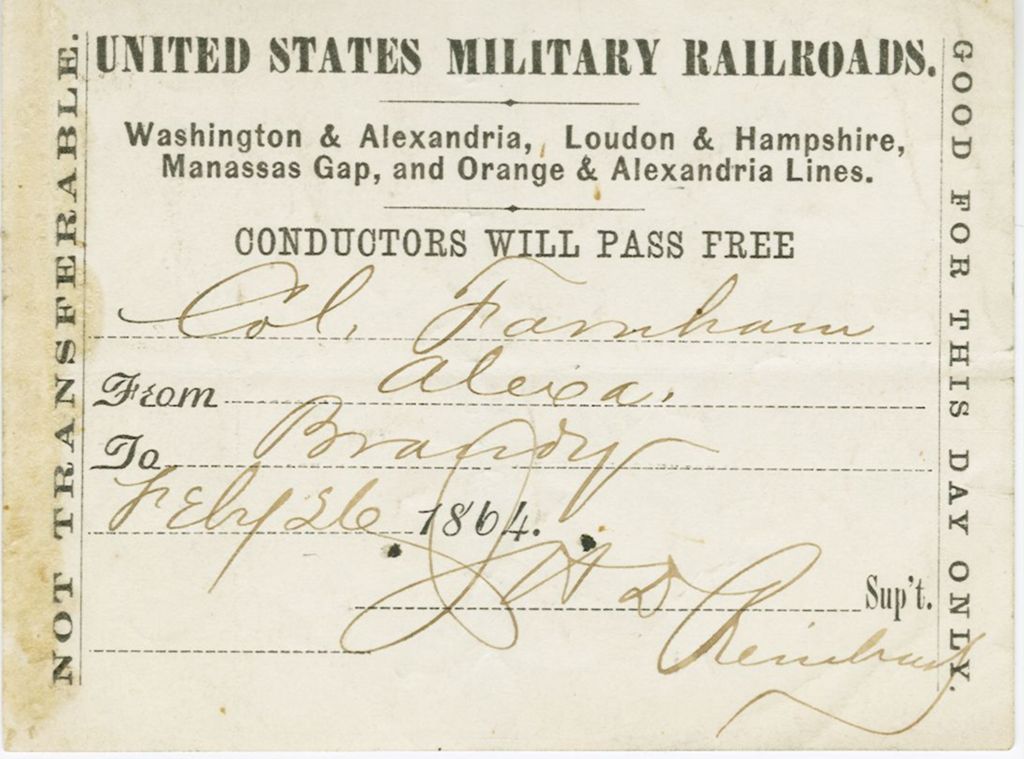 NOT TRANSFERABLE.
UNITED STATES MILITARY RAILROADS.
Washington & Alexandria, Loudon & Hampshire,
Manassas Gap, and Orange & Alexandria Lines.
CONDUCTORS WILL PASS FREE
Col. Farnham
From Alexa.
To Brandy
Feby 26 1864.
Sup't.
GOOD FOR THIS DAY ONLY.